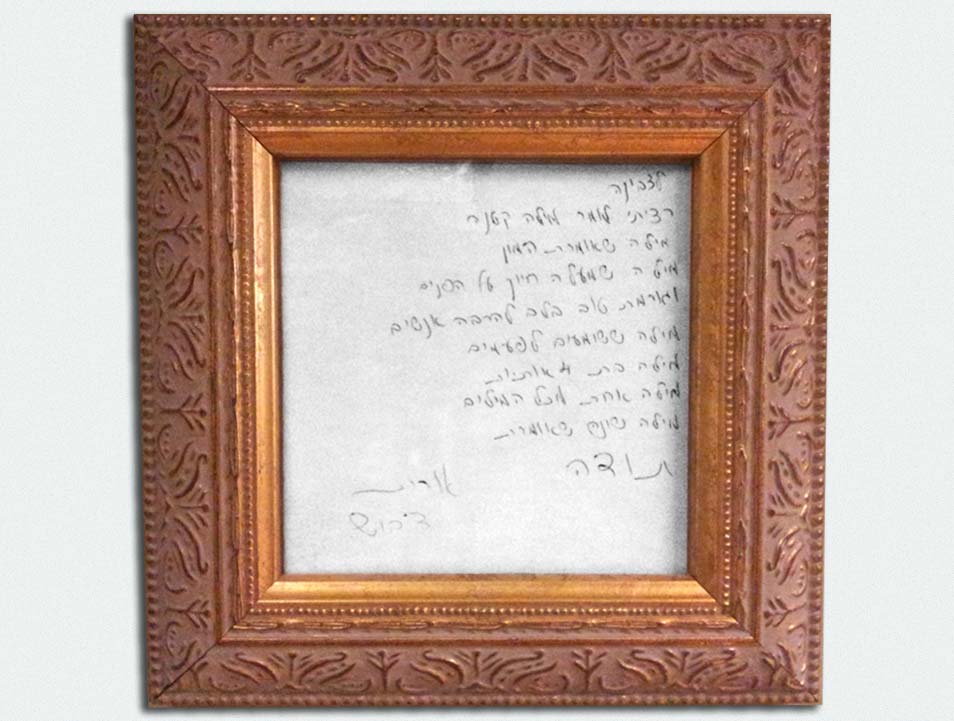 לצבינה
רציתי לומר מילה קטנה
מילה שאומרת המון
מילה שמעלה חיוך על הפנים
וגורמת טוב בלב להרבה אנשים
מילה ששומעים לפעמים
מילה בת 4 אותיות
מילה אחת מכל המילים
מילה שאומרת
תודה
אורית